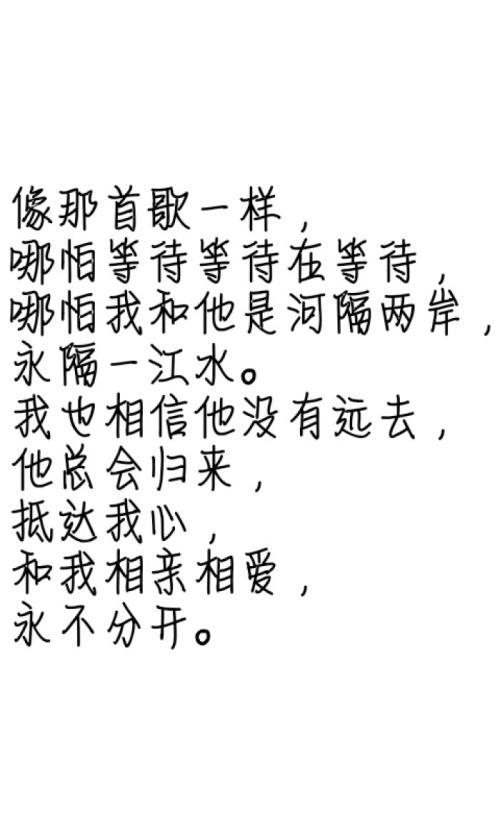 像那首歌一样，
哪怕等待等待在等待，
哪怕我和他是河隔两岸，
永隔一江水。
我也相信他没有远去，
他总会归来，
抵达我心，
和我相亲相爱，
永不分开。